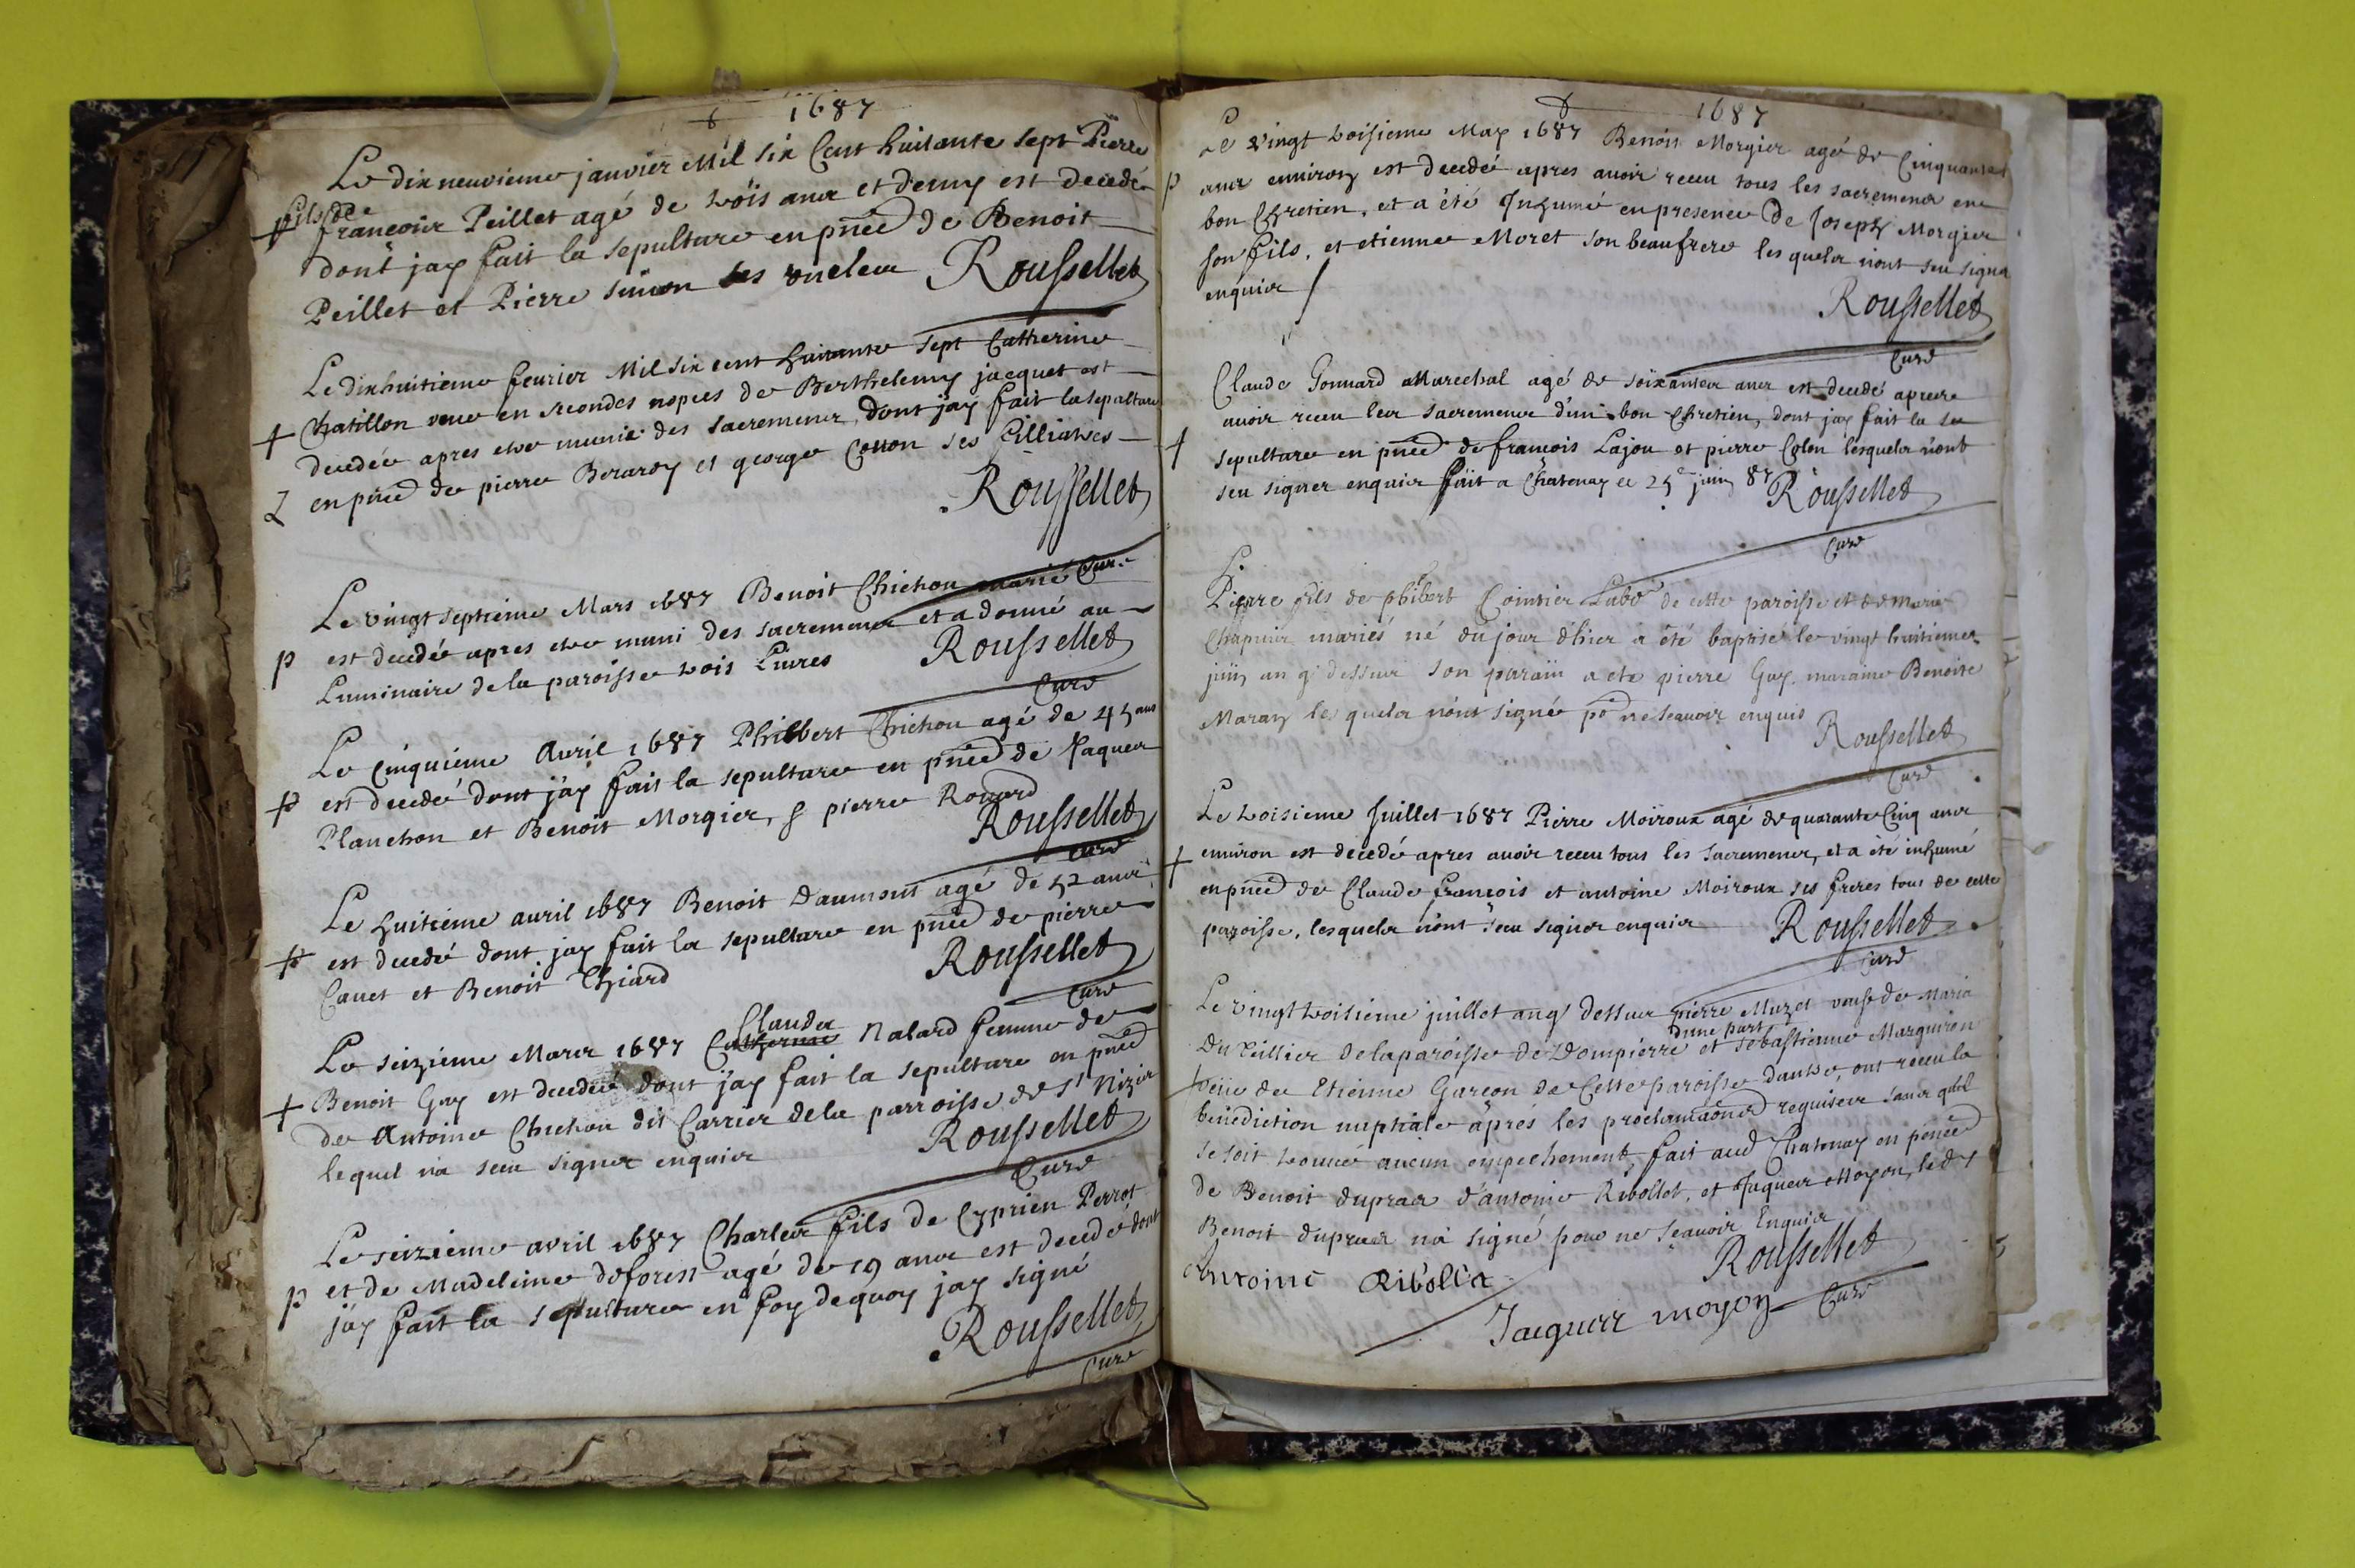 1687
Le dix neuvieme janvier Mil six Cent huitante sept Pierre
fils de
francois Peillet agé de trois ans et demy est decedé
dont jay fait la sepulture en pñce de Benoit
Peillet et Pierre simon ses oncles Roussellet
Le dixhuitieme feurier Mil six cent huitante sept Catherine
Chatillon veue en secondes nopces de Berthelemy jacquet est
decedée apres etre munie des sacremens, dont jay fait la sepulture
en pñce de pierre Berardy et george Cotton ses filliatres
Roussellet
Curé
Le vingt septieme Mars 1687 Benoit Chichou marié
est decedé apres etre muni des sacremens et a donné au
Luminaire de la paroisse trois Liures Roussellet
Curé
Le Cinquieme Avril 1687 Philibert Chichou agé de 45 ans
est decedé dont jay fait la sepulture en pñce de Jaques
Planchon et Benoit Morgier, & pierre Ronard
Roussellet
Curé
Le huitieme auril 1687 Benoit Daumont agé de 52 ans
est decedé dont jay fait la sepulture en pñce de pierre
Canet et Benoit Thiard Roussellet
Curé
Claude
Le seizieme Mars 1687 Catherine Nalard femme de
Benoit Guy est decedeé dont jay fait la sepulture en pñce
de Antoine Chichou dit Carrier dela parroisse de St Nizier
lequel na sceu signer enquis Roussellet
Curé
Le seizieme avril 1687 Charles fils de Cyprien Perrot
et de Madeleine deforest agé de 19 ans est decedé dont
jay fait la sepulture en foy dequoy jay signé
Roussellet
Curé
1687
Le vingt troisieme May 1687 Benoit Morgier agé de Cinquantes
ans environ est decedé apres avoir receu tous les sacremens en
bon Chretien, et a été Inhumé en presence de Joseph Morgier
son fils, et etienne Moret son beaufrere les quels nont sceu signer
enquis
Roussellet
Curé
Claude Gonnard Marechal agé de soixantes ans est decedé apres
avoir receu les sacremens d'un bon Chretien, dont jay fait la se
sepulture en pñce de francois Lajou et pierre Colon lesquels nont
sceu signer enquis fait a Chatenay ce 25e juin 87 Roussellet
Curé
Pierre fils de philibert Cointier Labo de cette paroisse et de Marie
Chapuis mariés né du jour d'hier a été baptisé le vingt huitieme
juin an q dessus son parain a eté pierre Guy, maraine Benoite
Maray les quels n'ont signé po ne scauoir enquis
Roussellet
Curé
Le troisieme Juillet 1687 Pierre Moiroux agé de quarante Cinq ans
environ est decedé apres auoir receu tous les sacremens, et a été inhumé
en pñce de Claude francois et antoine Moiroux ses freres tous de cette
paroisse, lesquels nont sceu signer enquis Roussellet
Curé
Le vingt troisieme juillet an q dessus pierre Muzet veuf de Maria
d'une part
Du Teillier dela paroisse de Dompierre et sebastienne Marguiron
veüe de Etienne Garcon de Cette paroisse d'autre, ont receu la
benediction nuptiale apres les proclamaons requises sans quil
se soit trouvé aucun empechement, fait aud Chatenay en pñce
de Benoit dupras d'antoine Ribollet, et Jaques Moyon, led
Benoit dupras na signé pour ne scauoir Enquis
Roussellet
Curé
Antoine Ribollet
Jacques moyon